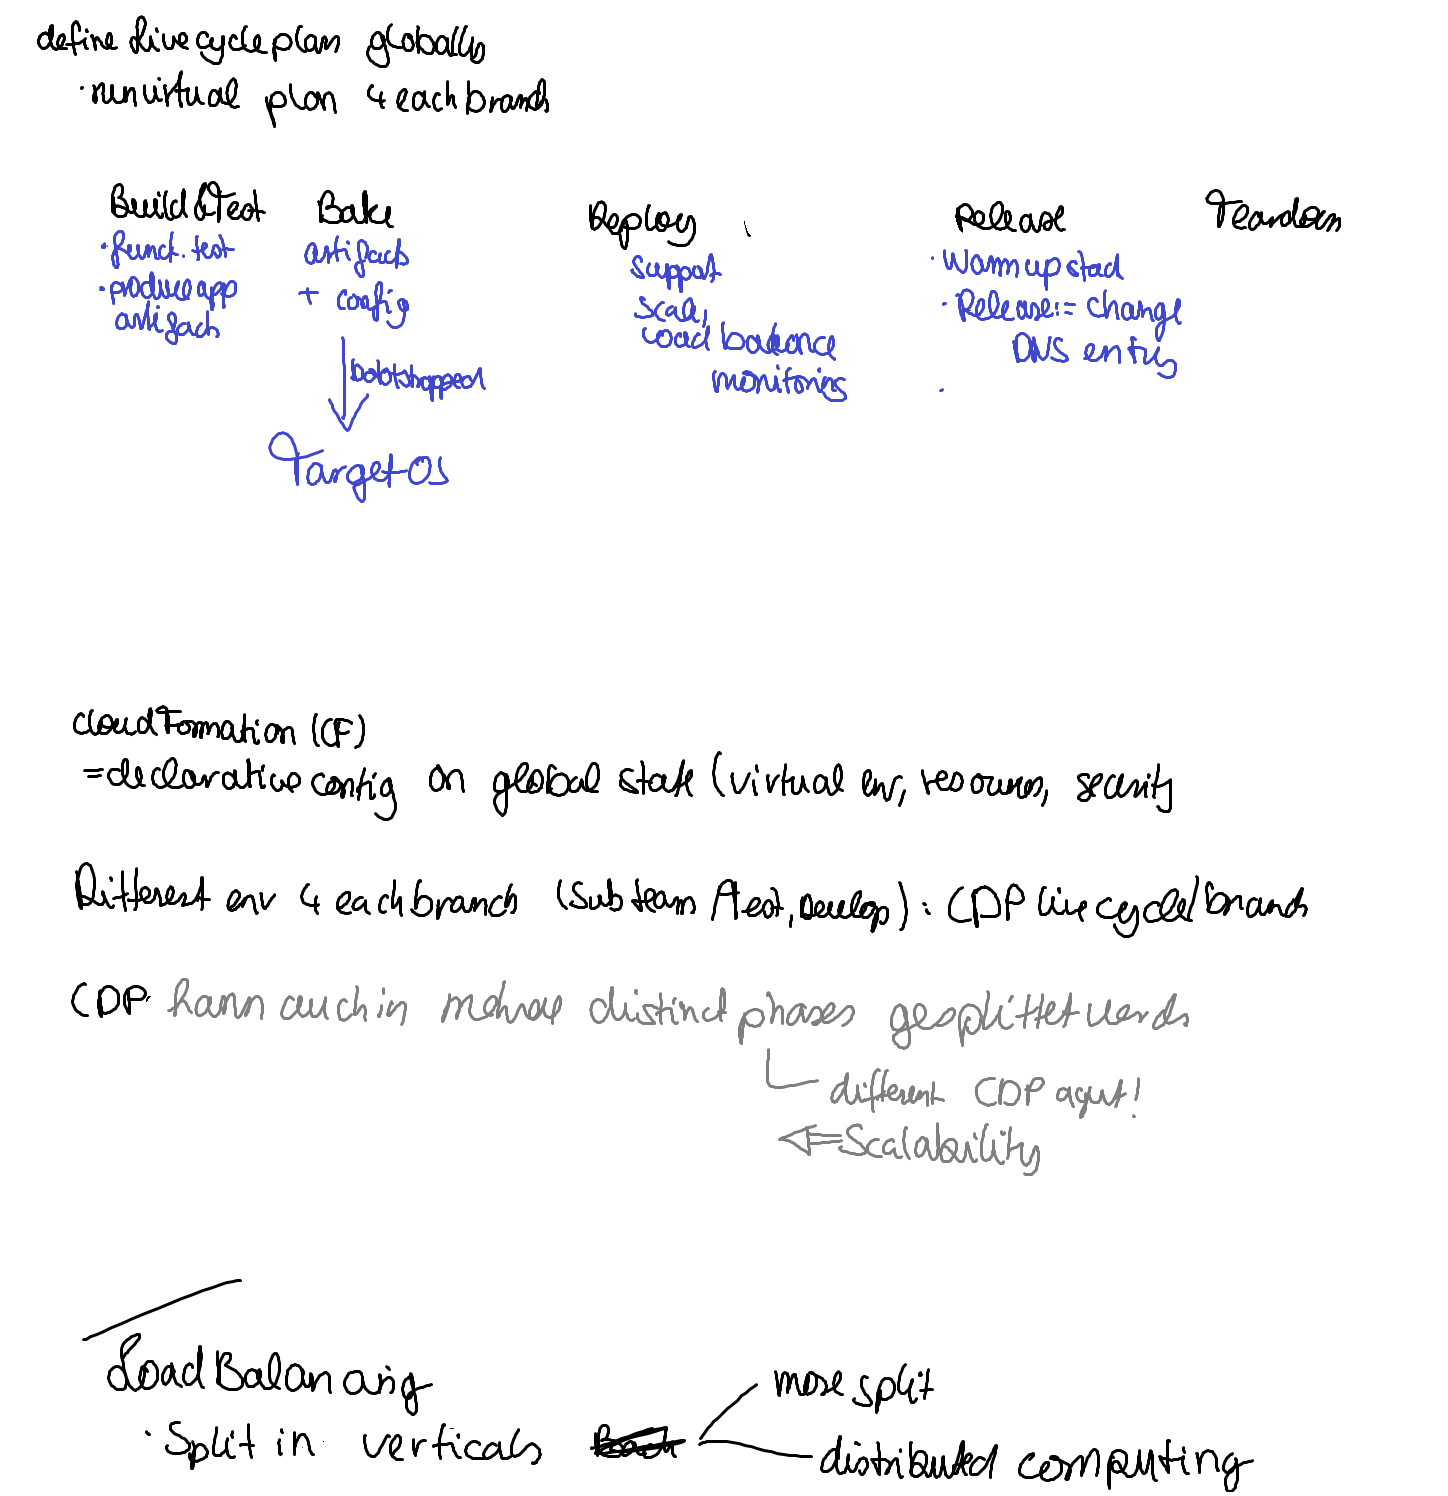 define Livecycleplan globally
· run virtual plan 4 each branch
Build & Test Bake Deploy Release Teardown
· funct. test
· produce app
artifacts
artifacts
+ config
bootstrapped
Target OS
support
scale,
load balance
monitoring
· Warm up stack
· Release := change
DNS entry
cloudFormation (CF)
= declarative config on global state (virtual env, resources, security
Different env 4 each branch (Subteam / test, Develop) : CDP live cycle/branch
CDP kann auch in mehrere distinct phases gesplittet werden
different CDP agent!
⇐ Scalability
Load Balancing
· Split in verticals
more split
distributed computing